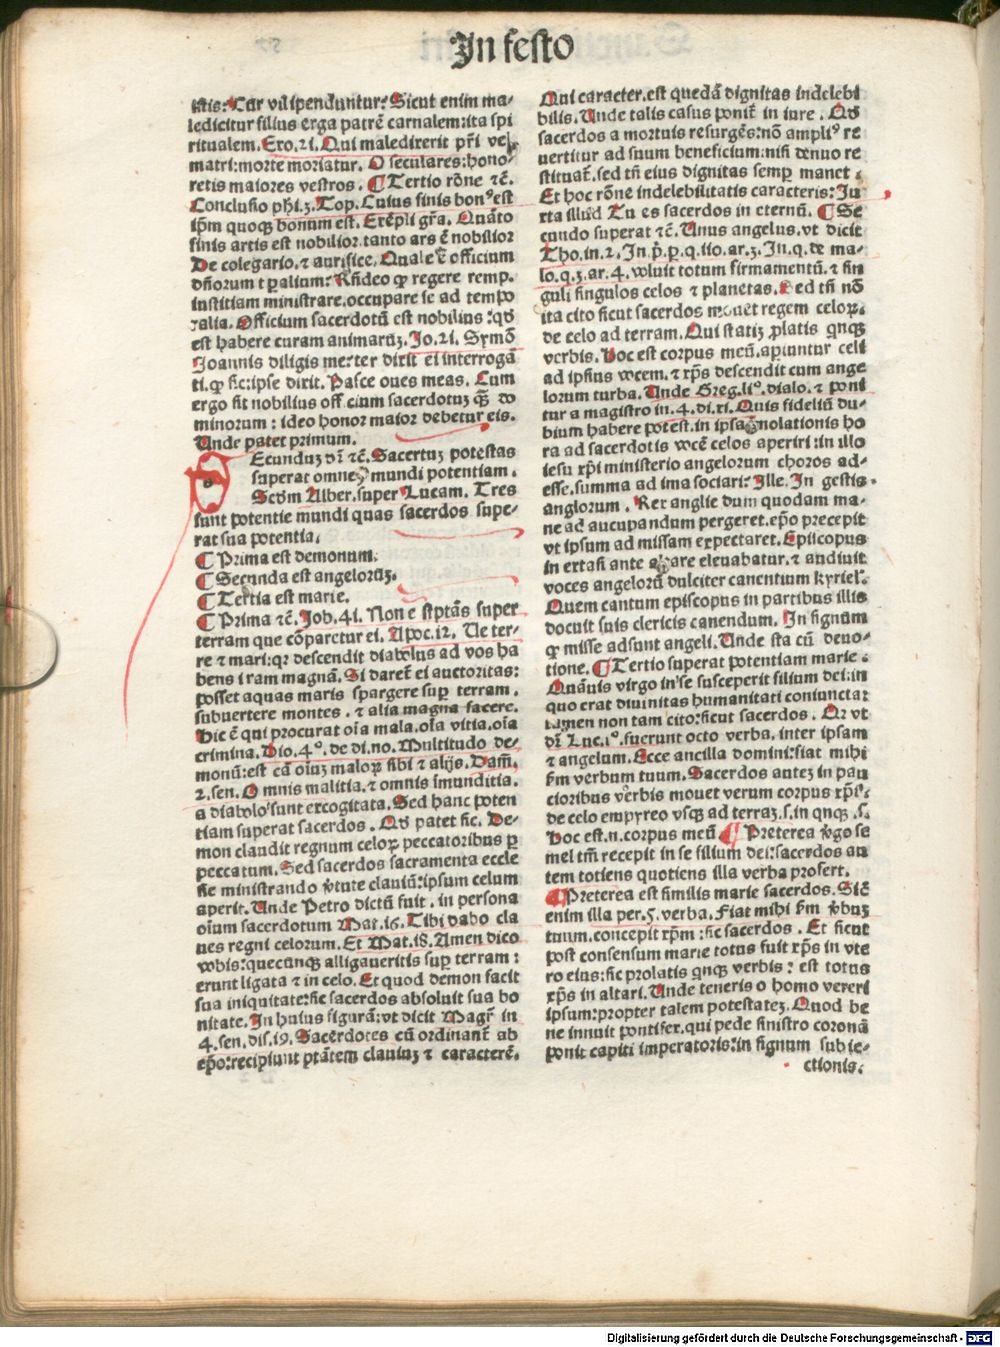 In festo
istis: Cur vilipenduntur? Sicut enim ma-
ledicitur filius erga patrē carnalem: ita spi
ritualem. Exo. 21. Qui maledixerit pr̄i vel
matri: morte moriatur. O seculares: hono-
retis maiores vestros. ¶ Tertio rōne ⁊c̄.
Conclusio ph̄i. 3. Top. Cuius finis bonꝰ est
ip̄m quoqꝫ bonum est. Exēpli gr̄a. Quāto
finis artis est nobilior tanto ars ē nobilior
De colegario. ⁊ aurifice. Quale ē officium
dn̄orum tꝑalium: Rn̄deo ꝙ regere remp.
iustitiam ministrare. occupare se ad tempo
ralia. Officium sacerdotū est nobilius: qꝺ
est habere curam animarūꝫ. Jo. 21. Symō
Joannis diligis me: ter dixit ei interrogā
ti. ꝙ sic: ipse dixit. Pasce oues meas. Cum
ergo sit nobilius officium sacerdotuꝫ qꝫ̄ do
minorum: ideo honor maior debetur eis.
Unde patet primum.
Secunduꝫ dr̄ ⁊c̄. Sacertuꝫ potestas
superat omnes mundi potentiam.
Scd̄m Alber. super Lucam. Tres
sunt potentie mundi quas sacerdos supe-
rat sua potentia.
¶ Prima est demonum.
¶ Secunda est angeloruꝫ.
¶ Tertia est marie.
¶ Prima ⁊c̄. Job. 41. Non est ptās super
terram que cōparetur ei. Apoc. 12. Ue ter-
re ⁊ mari: qꝛ descendit diabolus ad vos ha
bens iram magnā. Si daret̄ ei auctoritas:
posset aquas maris spargere suꝑ terram.
subuertere montes. ⁊ alia magna facere.
Hic ē qui procurat oīa mala. oīa vitia. oīa
crimina. Dio. 4°. de di. no. Multitudo de-
monū: est cā oiuꝫ maloꝝ sibi ⁊ alijs. Dam̄.
2. sen. Omnis malitia. ⁊ omnis imunditia.
a diabolo sunt excogitata. Sed hanc poten
tiam superat sacerdos. Qꝺ patet sic. De-
mon claudit regnum celoꝝ peccatoribus ꝑ
peccatum. Sed sacerdos sacramenta eccle
sie ministrando v̓tute clauiū: ipsum celum
aperit. Unde Petro dictū fuit. in persona
oīum sacerdotum Mat. 16. Tibi dabo cla
ues regni celorum. Et Mat. 18. Amen dico
vobis: quecunqꝫ alligaueritis suꝑ terram:
erunt ligata ⁊ in celo. Et quod demon facit
sua iniquitate: sic sacerdos absoluit sua bo
nitate. In huius figurā: vt dicit Magr̄ in
4. sen. dis. 19. Sacerdotes cū ordinant̄ ab
ep̄o: recipiunt ptātem clauiuꝫ ⁊ caracterē.
Qui caracter. est quedā dignitas indelebi
bilis. Unde talis casus ponit̄ in iure. Qꝺ
sacerdos a mortuis resurgēs: nō ampliꝰ re
uertitur ad suum beneficium: nisi denuo re
stituat̄. sed tn̄ eius dignitas semꝑ manet.
Et hoc rōne indelebilitatis caracteris: Ju
xta illud Tu es sacerdos in eternū. ¶ Se
cundo superat ⁊c̄. Unus angelus. vt dicit
Tho. in. 2. In. p̄. p. q. 110. ar. 3. In. q. de ma-
lo. q. 3. ar. 4. voluit totum firmamentū. ⁊ sin
guli singulos celos ⁊ planetas. Sed tn̄ nō
ita cito sicut sacerdos mouet regem celoꝝ.
de celo ad terram. Qui statiꝫ ꝓlatis qnqꝫ
verbis. Hoc est corpus meū. apiuntur celi
ad ipsius vocem. ⁊ xp̄s descendit cum ange
lorum turba. Unde Greg. liº. dialo. ⁊ poni
tur a magistro in. 4. di. xi. Quis fideliū du-
bium habere potest. in ipsa īmolationis ho
ra ad sacerdotis vocē celos aperiri: in illo
iesu xp̄i ministerio angelorum choros ad-
esse. summa ad ima sociari: Ille. In gestis
anglorum. Rex anglie dum quodam ma-
ne ad aucupandum pergeret. ep̄o precepit
vt ipsum ad missam expectaret. Episcopus
in extasi ante altare eleuabatur. ⁊ audiuit
voces angelorū dulciter canentium kyriel.
Quem cantum episcopus in partibus illis
docuit suis clericis canendum. In signum
ꝙ misse adsunt angeli. Unde sta cū deuo-
tione. ¶ Tertio superat potentiam marie.
Quāuis virgo in se susceperit filium dei: in
quo erat diuinitas humanitati coniuncta:
tamen non tam cito: sicut sacerdos. Qꝛ vt
dr̄ Luc. 1°. fuerunt octo verba. inter ipsam
⁊ angelum. Ecce ancilla domini: fiat mihi
ẜm verbum tuum. Sacerdos auteꝫ in pau
cioribus verbis mouet verum corpus xp̄i.
de celo empyreo vsqꝫ ad terraꝫ. s. in qnqꝫ. s.
Hoc est. n. corpus meū ¶ Preterea v̓go se
mel tm̄ recepit in se filium dei: sacerdos au
tem totiens quotiens illa verba profert.
¶ Preterea est similis marie sacerdos. Sic̄
enim illa per. 5. verba. Fiat mihi ẜm v̓buꝫ
tuum. concepit xp̄m: sic sacerdos. Et sicut
post consensum marie totus fuit xp̄s in vte
ro eius: sic prolatis qnqꝫ verbis: est totus
xp̄s in altari. Unde teneris o homo vereri
ipsum: propter talem potestateꝫ. Quod be
ne innuit pontifex. qui pede sinistro coronā
ponit capiti imperatoris: in signum subie-
ctionis.
Digitalisierung gefördert durch die Deutsche Forschungsgemeinschaft - DFG